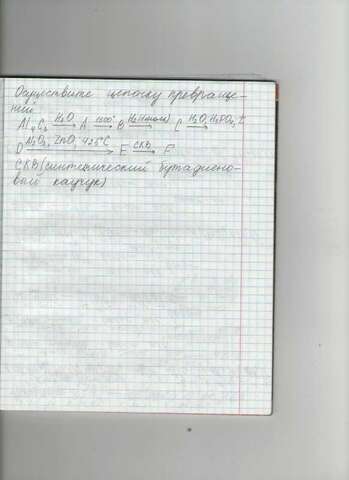 Осуществите цепочку превраще-
ний
Al₄C₃ H₂O→ A 1500°→ B H₂(1моль)→ C H₂O, H₃PO₄, t→
D Al₂O₃, ZnO, 425°C→ E СКВ→ F
СКВ (синтетический бутадиено-
вый каучук)